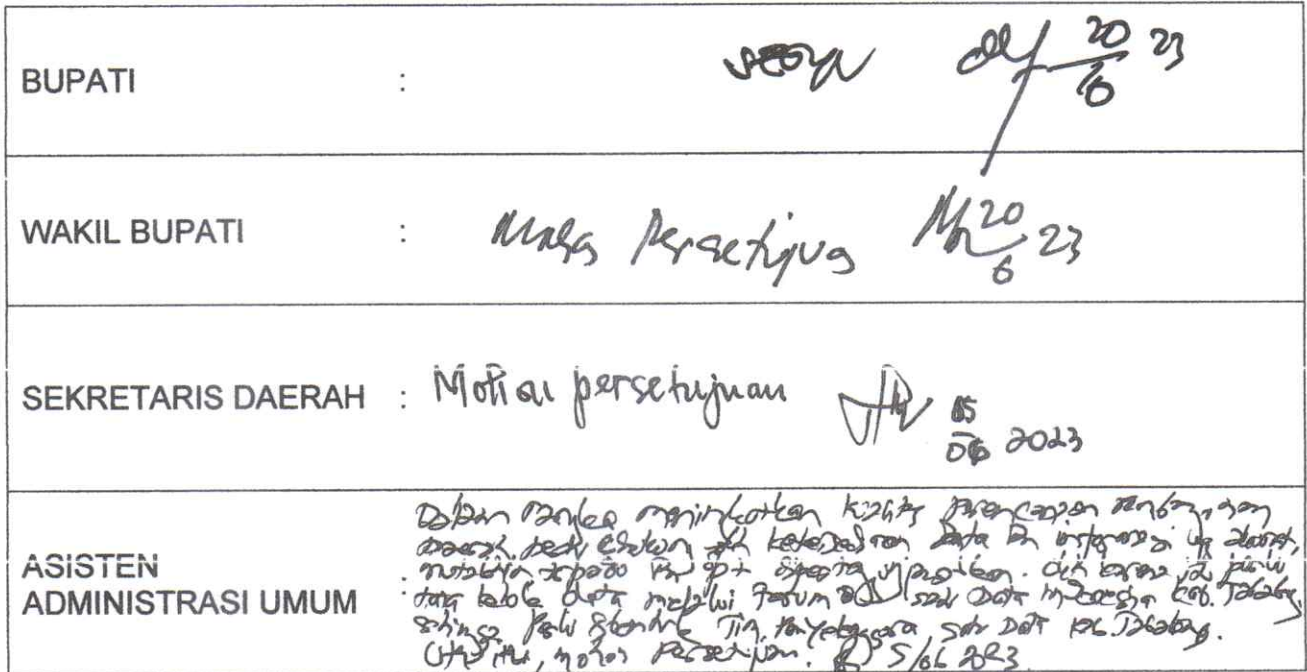 BUPATI :
20/6 23
WAKIL BUPATI : Mohon Persetujuan 20/6 23
SEKRETARIS DAERAH : Mohon persetujuan 05/06 2023
Dalam rangka meningkatkan kualitas perencanaan pembangunan
daerah perlu didukung oleh ketersediaan Data dan informasi yg akurat,
dan dpt dipertanggungjawabkan. Oleh karena itu perlu
ASISTEN
ADMINISTRASI UMUM :
tata kelola data melalui Forum Satu Data Indonesia Kab.
sehingga perlu dibentuk Tim Penyelenggara Satu Data Kab.
Utk itu, mohon Persetujuan. 5/06 2023